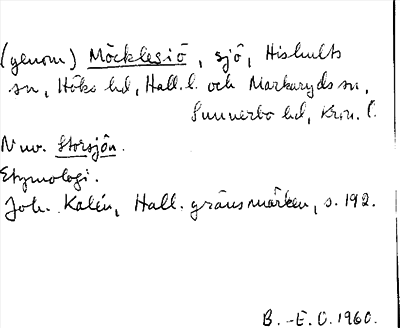 (genom) Möcklesiö, sjö, Hishults
sn, Höks hd, Hall. l. och Markaryds sn,
Sunnerbo hd, Kron. l.
Nuv. Storsjön.
Etymologi.
Joh. Kalén, Hall. gränsmärken, s. 192.
B.-E. O. 1960.